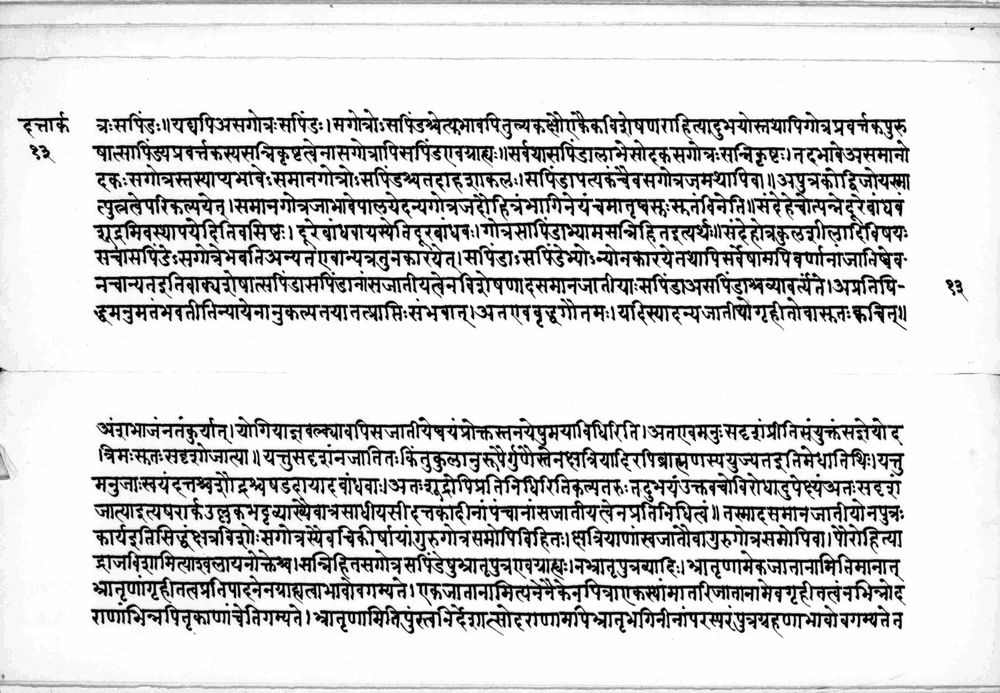 दत्तार्क
१३
त्रःसपिंडः॥यद्यपिअसगोत्रःसपिंडः।सगोत्रोऽसपिंडश्चेत्युभावपितुल्यकक्षौएकैकविशेषणराहित्यादुभयोस्तथापिगोत्रप्रवर्त्तकपुरु
षात्सापिंड्यप्रवर्त्तकस्यसन्निकृष्टत्वेनासगोत्रापिसपिंडएवग्राह्यः॥सर्वथासपिंडालाभेसोदकसगोत्रःसन्निकृष्टः।तदभावेअसमानो
दकःसगोत्रस्तस्याप्यभावेऽसमानगोत्रोऽसपिंडश्चतदाहशाकलः।सपिंडापत्यकंचैवसगोत्रजमथापिवा॥अपुत्रकोद्विजोयस्मा
त्पुत्रत्वेपरिकल्पयेत्।समानगोत्रजाभावेपालयेदन्यगोत्रजंदौहित्रंभागिनेयंचमातृष्वसृःसुतंविनेति॥संदेहेचोत्पन्नेदूरेबांधवं
शूद्रमिवस्थापयेदितिवसिष्ठः।दूरेबांधवायस्येतिदूरबांधवः।गोत्रसापिंडाभ्यामसन्निहितइत्यर्थः॥संदेहोत्रकुलशीलादिविषयः
सचासपिंडेऽसगोत्रेभवतिअन्यतएवान्यत्रतुनकारयेत्।सपिंडाऽसपिंडेभ्योऽन्योनकारयेतथापिसर्वेषामपिवर्णानांजातिष्वेव-
नचान्यतइतिवाक्यशेषात्सपिंडासपिंडानांसजातीयत्वेनविशेषणादसमानजातीयाःसपिंडाअसपिंडाश्चव्यावर्त्यंते।अप्रतिषि-
१३
द्धमनुमतंभवतीतिन्यायेनानुकल्पतयातत्प्राप्तिःसंभवात्।अतएववृद्धगौतमः।यदिस्यादन्यजातीयोगृहीतोवासुतःक्वचित्॥
अंशभाजंनतंकुर्यात्।योगियाज्ञवल्क्यावपिसजातीयेष्वयंप्रोक्तस्तनयेषुमयाविधिरिति।अतएवमनुःसदृशंप्रीतिसंयुक्तंसज्ञेयोद
त्रिमःसुतःसदृशोजात्या॥यत्तुसदृशंनजातितःकिंतुकुलानुरूपैर्गुणैस्तेनक्षत्रियादिरपिब्राह्मणस्ययुज्यतइतिमेधातिथिः।यत्तु
मनुजाःस्वयंदत्तश्चशौद्रश्चषडदायादबांधवाः।अतःशूद्रोपिप्रतिनिधिरितिकल्पतरुःतदुभयंउक्तवचोविरोधादुपेक्ष्यंअतःसदृशं
जात्याइत्यपरार्कउल्लूकभट्टव्याख्यैवात्रसाधीयसीदत्तकादीनांपंचानांसजातीयत्वेनप्रतिनिधित्वं॥तस्मादसमानजातीयोनपुत्रः
कार्यइतिसिद्धंक्षत्रविशोःसगोत्रस्यैवचिकीर्षायांगुरुगोत्रसमोपिविहितः।क्षत्रियाणांस्वजातौवागुरुगोत्रसमोपिवा।पौरोहित्या
द्राजविशामित्याश्वलायनोक्तेश्च।सन्निहितसगोत्रसपिंडेषुभ्रातृपुत्रएवग्राह्यः।नभ्रातृपुत्रव्यादिः।भ्रातृणामेकजातानामितिमानात्
भ्रातृणांगृहीतत्वप्रतिपादनेनग्राह्यत्वाभावोवगम्यते।एकजातानामित्यनेनैकेनपित्राएकस्यांमातरिजातानामेवगृहीतत्वंनभिन्नोद
राणांभिन्नपितृकाणांचेतिगम्यते।भ्रातृणामितिपुंस्त्वनिर्देशात्सोदराणामपिभ्रातृभगिनीनांपरस्परंपुत्रग्रहणाभावोवगम्यतेन